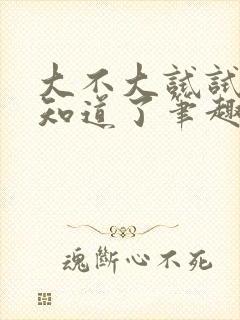 大不大试试
知道了笔趣
魂斷心不死